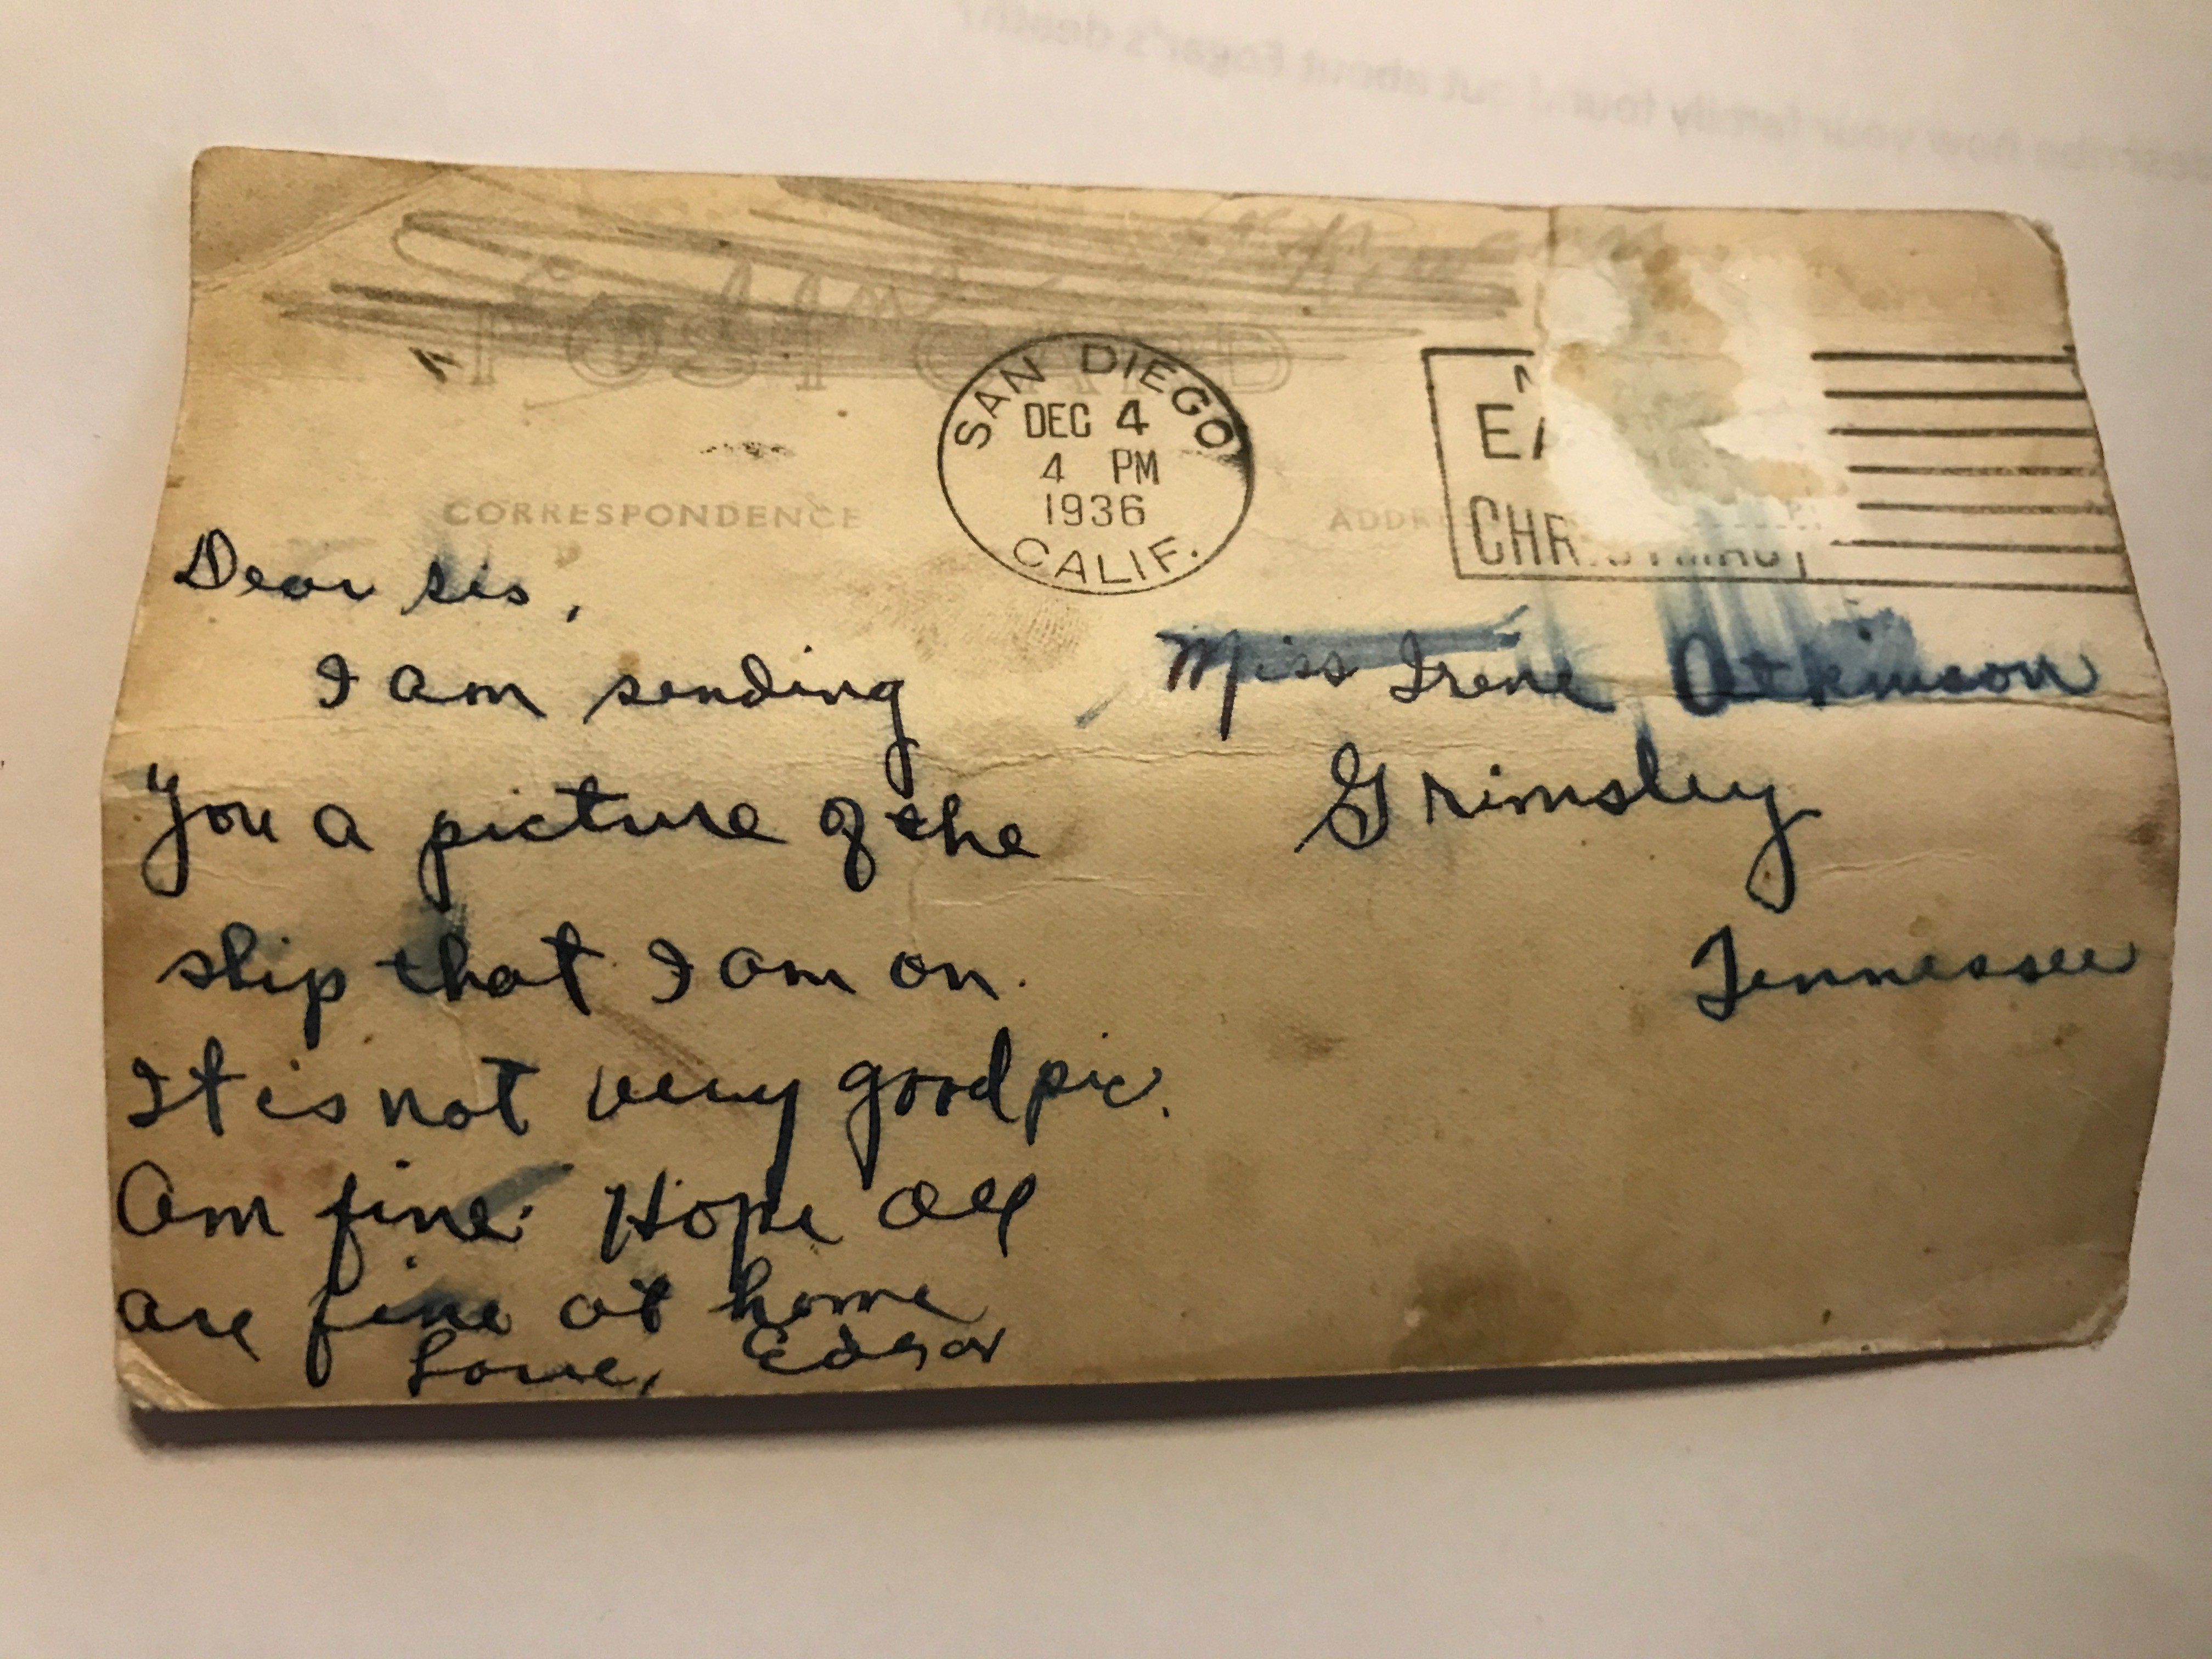 escribe how your family found out about Edgar's death?
POST CARD
SAN DIEGO
DEC 4
4 PM
1936
CALIF.
CORRESPONDENCE
Dear Sis,
I am sending
you a picture of the
ship that I am on.
It is not very good pic.
Am fine. Hope all
are fine at home
Love, Edgar
Miss Irene Atkinson
Grimsley
Tennessee